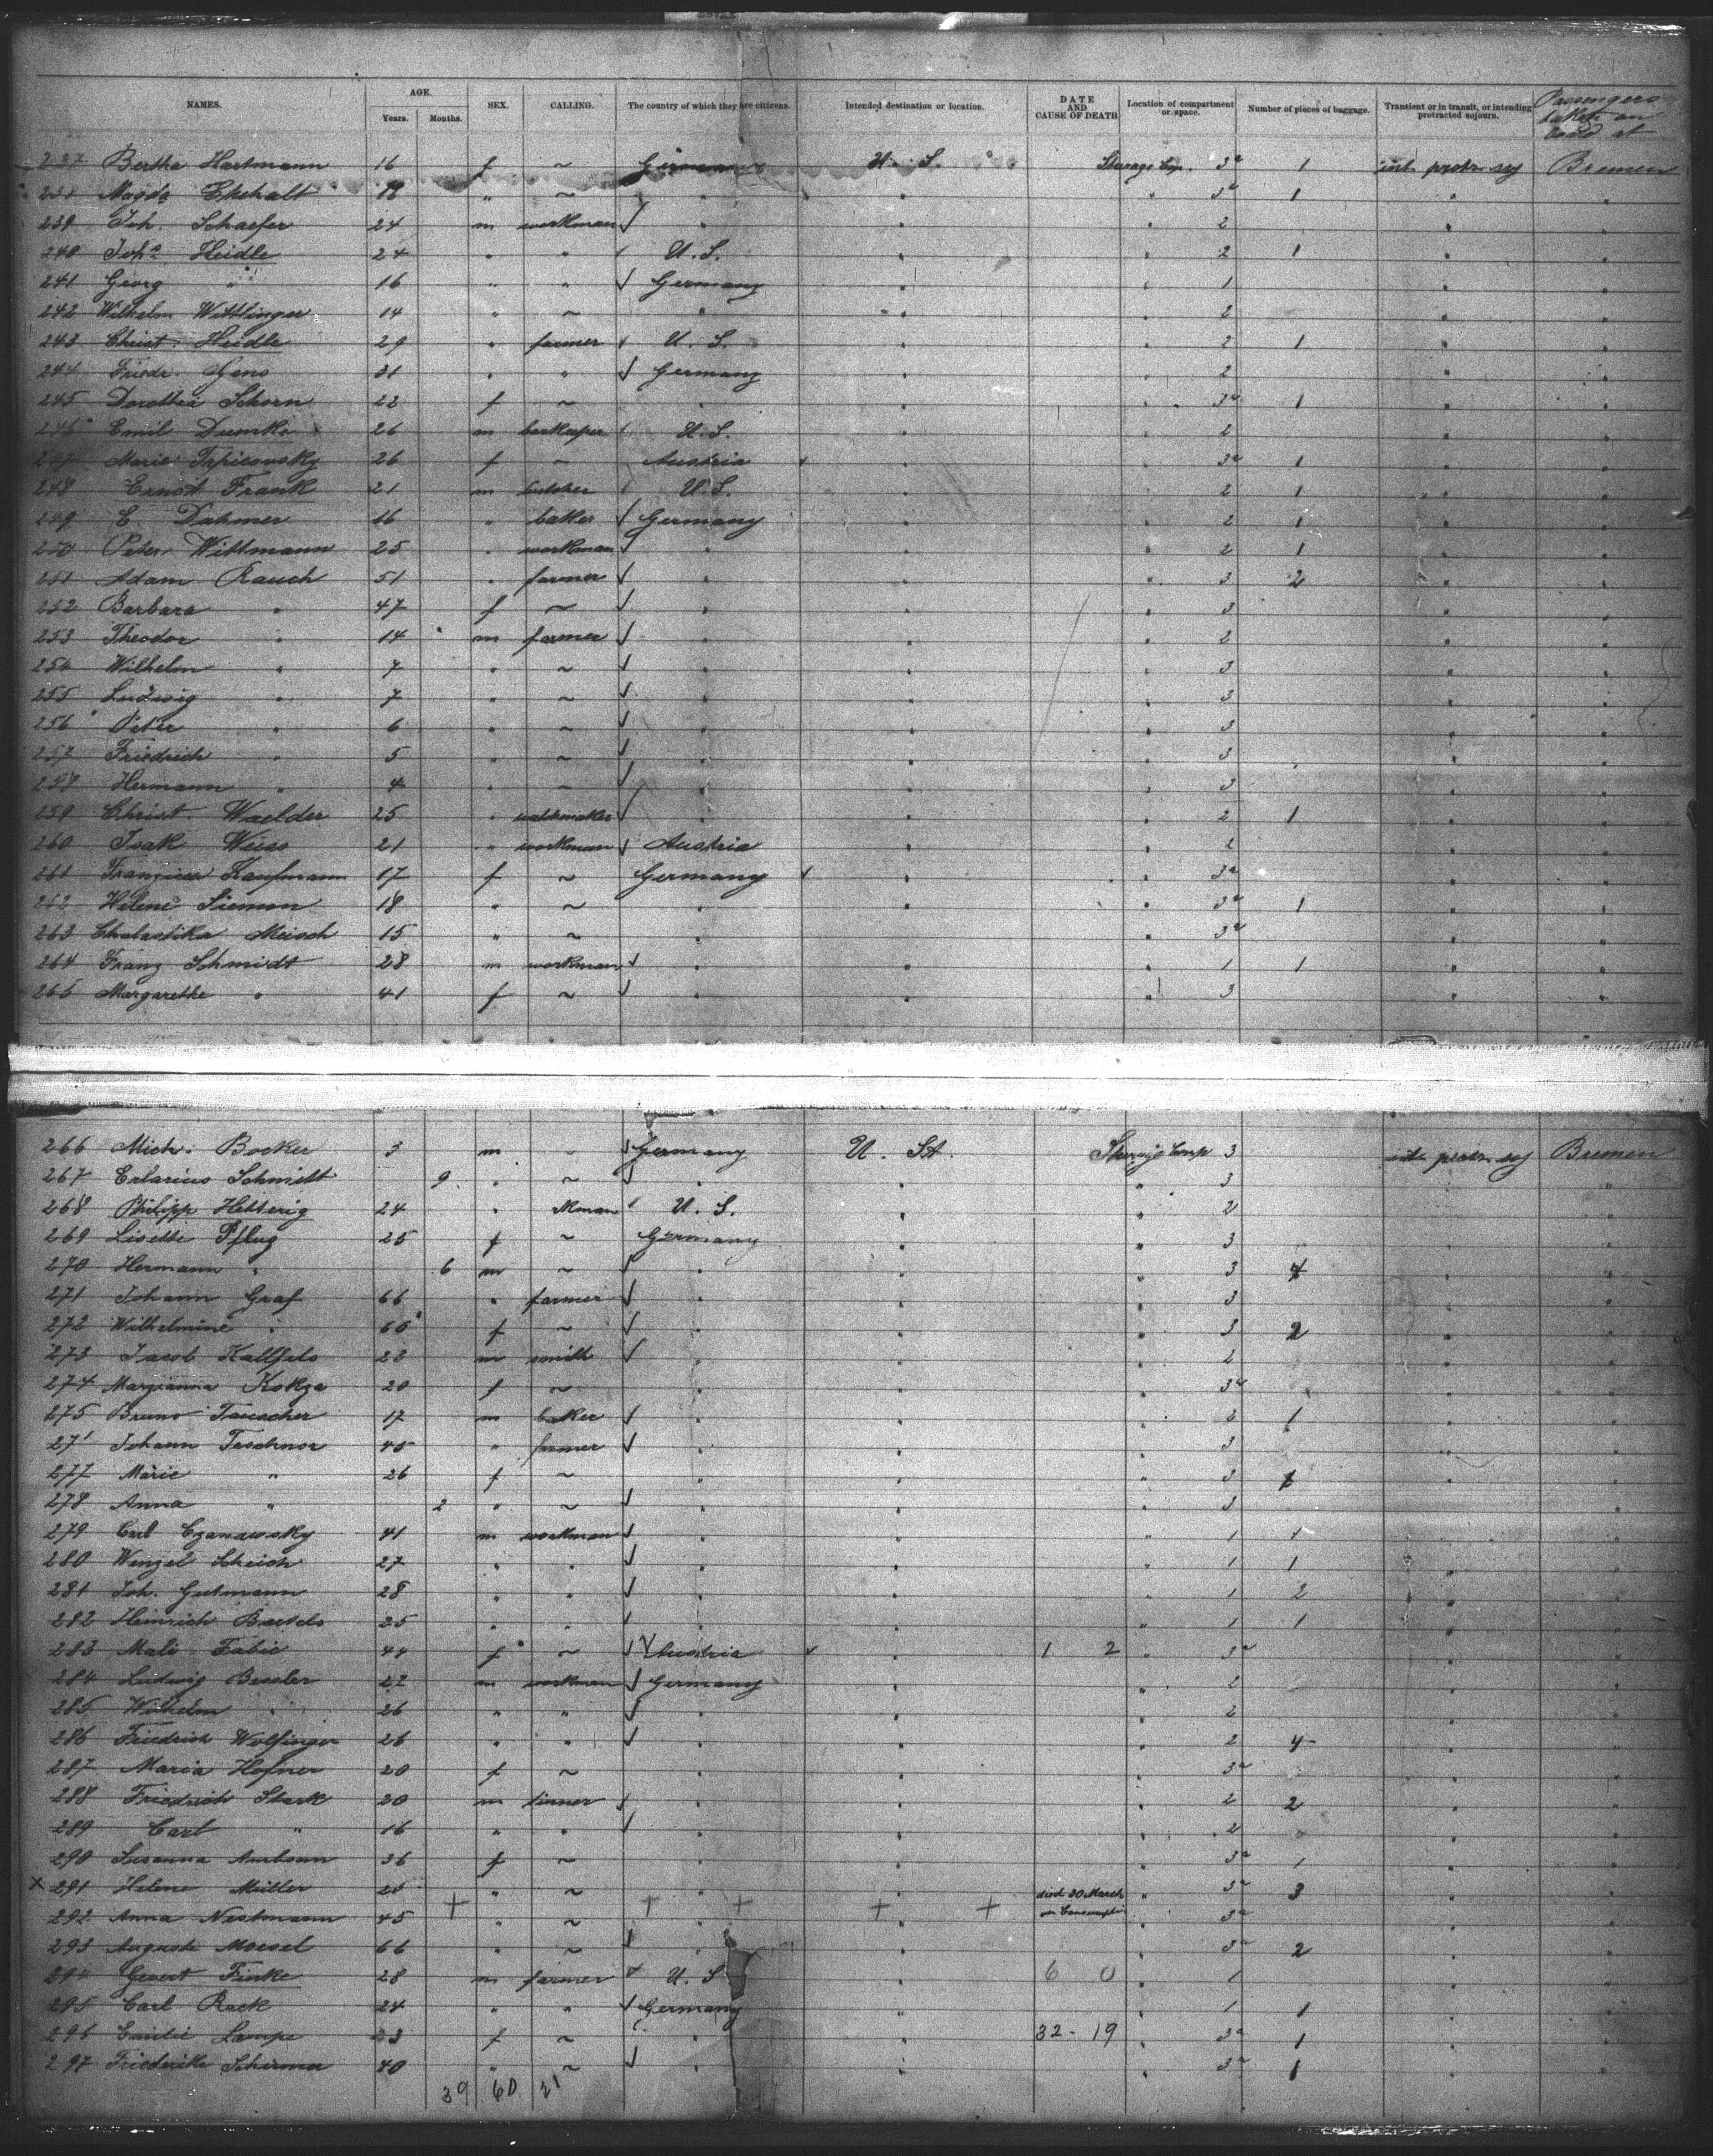 NAMES. AGE. Years. Months. SEX. CALLING. The country of which they are citizens. Intended destination or location. DATE AND CAUSE OF DEATH Location of compartment or space. Number of pieces of baggage. Transient or in transit, or intending protracted sojourn. Passengers taken on board at
237 Bertha Hartmann 16 f ~ Germany U. S. Steerage Comp. 3a 1 int. protr. soj Bremen
238 Magda Ekehalt 18 " ~ " " " 3a 1 " "
239 Joh. Schaefer 24 m workman √ " " " 2 " "
240 Joha Heidle 24 " " U. S. " " 2 1 " "
241 Georg " 16 " " √ Germany " " 1 " "
242 Wilhelm Wittlinger 14 " ~ " " " 2 " "
243 Christ. Heidle 29 " farmer U. S. " " 2 1 " "
244 Friedr. Gens 31 " " √ Germany " " 2 " "
245 Dorothea Schorn 22 f ~ " " " 3a 1 " "
246 Emil Dumke 26 m barkeeper U. S. " " 2 " "
247 Marie 26 f ~ Austria " " 3a 1 " "
248 Ernst Frank 21 m butcher U. S. " " 2 1 " "
249 E. Dahmer 16 " baker √ Germany " " 2 1 " "
250 Peter Wittmann 25 " workman √ " " " 2 1 " "
251 Adam Rauch 51 " farmer √ " " " 3 2 " "
252 Barbara " 47 f ~ √ " " " 3 " "
253 Theodor " 14 m farmer √ " " " 2 " "
254 Wilhelm " 7 " ~ √ " " " 3 " "
255 Ludwig " 7 " ~ √ " " " 3 " "
256 Peter " 6 " ~ √ " " " 3 " "
257 Friedrich " 5 " ~ √ " " " 3 " "
258 Hermann " 4 " ~ √ " " " 3 " "
259 Christ. Waelder 25 " watchmaker √ " " " 2 1 " "
260 Isak Weiss 21 " workman √ Austria " " 2 " "
261 Kaufmann 17 f ~ Germany " " 3a " "
262 Helene Siemon 18 " ~ " " " 3a 1 " "
263 Chalastika Meisch 15 " ~ " " " 3a " "
264 Franz Schmidt 28 m workman √ " " " 1 1 " "
265 Margarethe " 41 f ~ √ " " " 3 " "
266 Mich. Bocker 3 m ~ √ Germany U. St. Steerage Comp 3 int. protr. soj Bremen
267 Schmidt 9 " ~ √ " " " 3 " "
268 Philipp Hetterig 24 " U. S. " " 2 " "
269 Lisette Pflug 25 f ~ Germany " " 3 " "
270 Hermann " 6 m ~ √ " " " 3 " "
271 Johann Graf 66 " farmer √ " " " 3 " "
272 Wilhelmine " 60 f ~ √ " " " 3 2 " "
273 Jacob Kallfels 23 m smith √ " " " 2 " "
274 Maryianna Kokza 20 f ~ " " " 3a " "
275 Bruno Tauscher 17 m baker √ " " " 2 1 " "
27 Johann Teschnor 45 " farmer √ " " " 3 " "
277 Marie " 26 f ~ " " " 3 1 " "
278 Anna " 2 " ~ √ " " " 3 " "
279 Carl Czanowsky 41 m workman √ " " " 1 1 " "
280 Wenzel Scheich 27 " " √ " " " 1 1 " "
281 Joh. Gutmann 28 " " √ " " " 1 2 " "
282 Heinrich Bartels 25 " " √ " " " 1 1 " "
283 Mali Fabic 44 f ~ √ Austria " 1 2 " 3a " "
284 Ludwig Bessler 27 m workman √ Germany " " 2 " "
285 Wilhelm " 26 " " √ " " " 2 " "
286 Friedrich Wolfinger 26 " " √ " " " 2 4 " "
287 Maria Hofner 20 f ~ " " " 3a " "
288 Friedrich Stark 20 m tinner √ " " " 2 2 " "
289 Carl " 16 " " √ " " " 2 " "
290 Susanna 36 f ~ " " " 3a 1 " "
x 291 Helene Müller 25 " ~ " " died 30 March " 3a 3 " "
292 Anna Nestmann 45 + " ~ + " + + " + on Consumption " 3a " "
293 Auguste Moesel 66 " ~ √ " " " 3a 2 " "
294 Gevert Finke 28 m farmer U. S " 6 0 " 1 " "
295 Carl Rack 24 " " √ Germany " " 1 1 " "
296 Emilie Lampe 23 f ~ " " 32 - 19 " 3a 1 " "
297 Friederike Schirmer 40 " ~ √ " " " 3a 1 " "
39 60 21